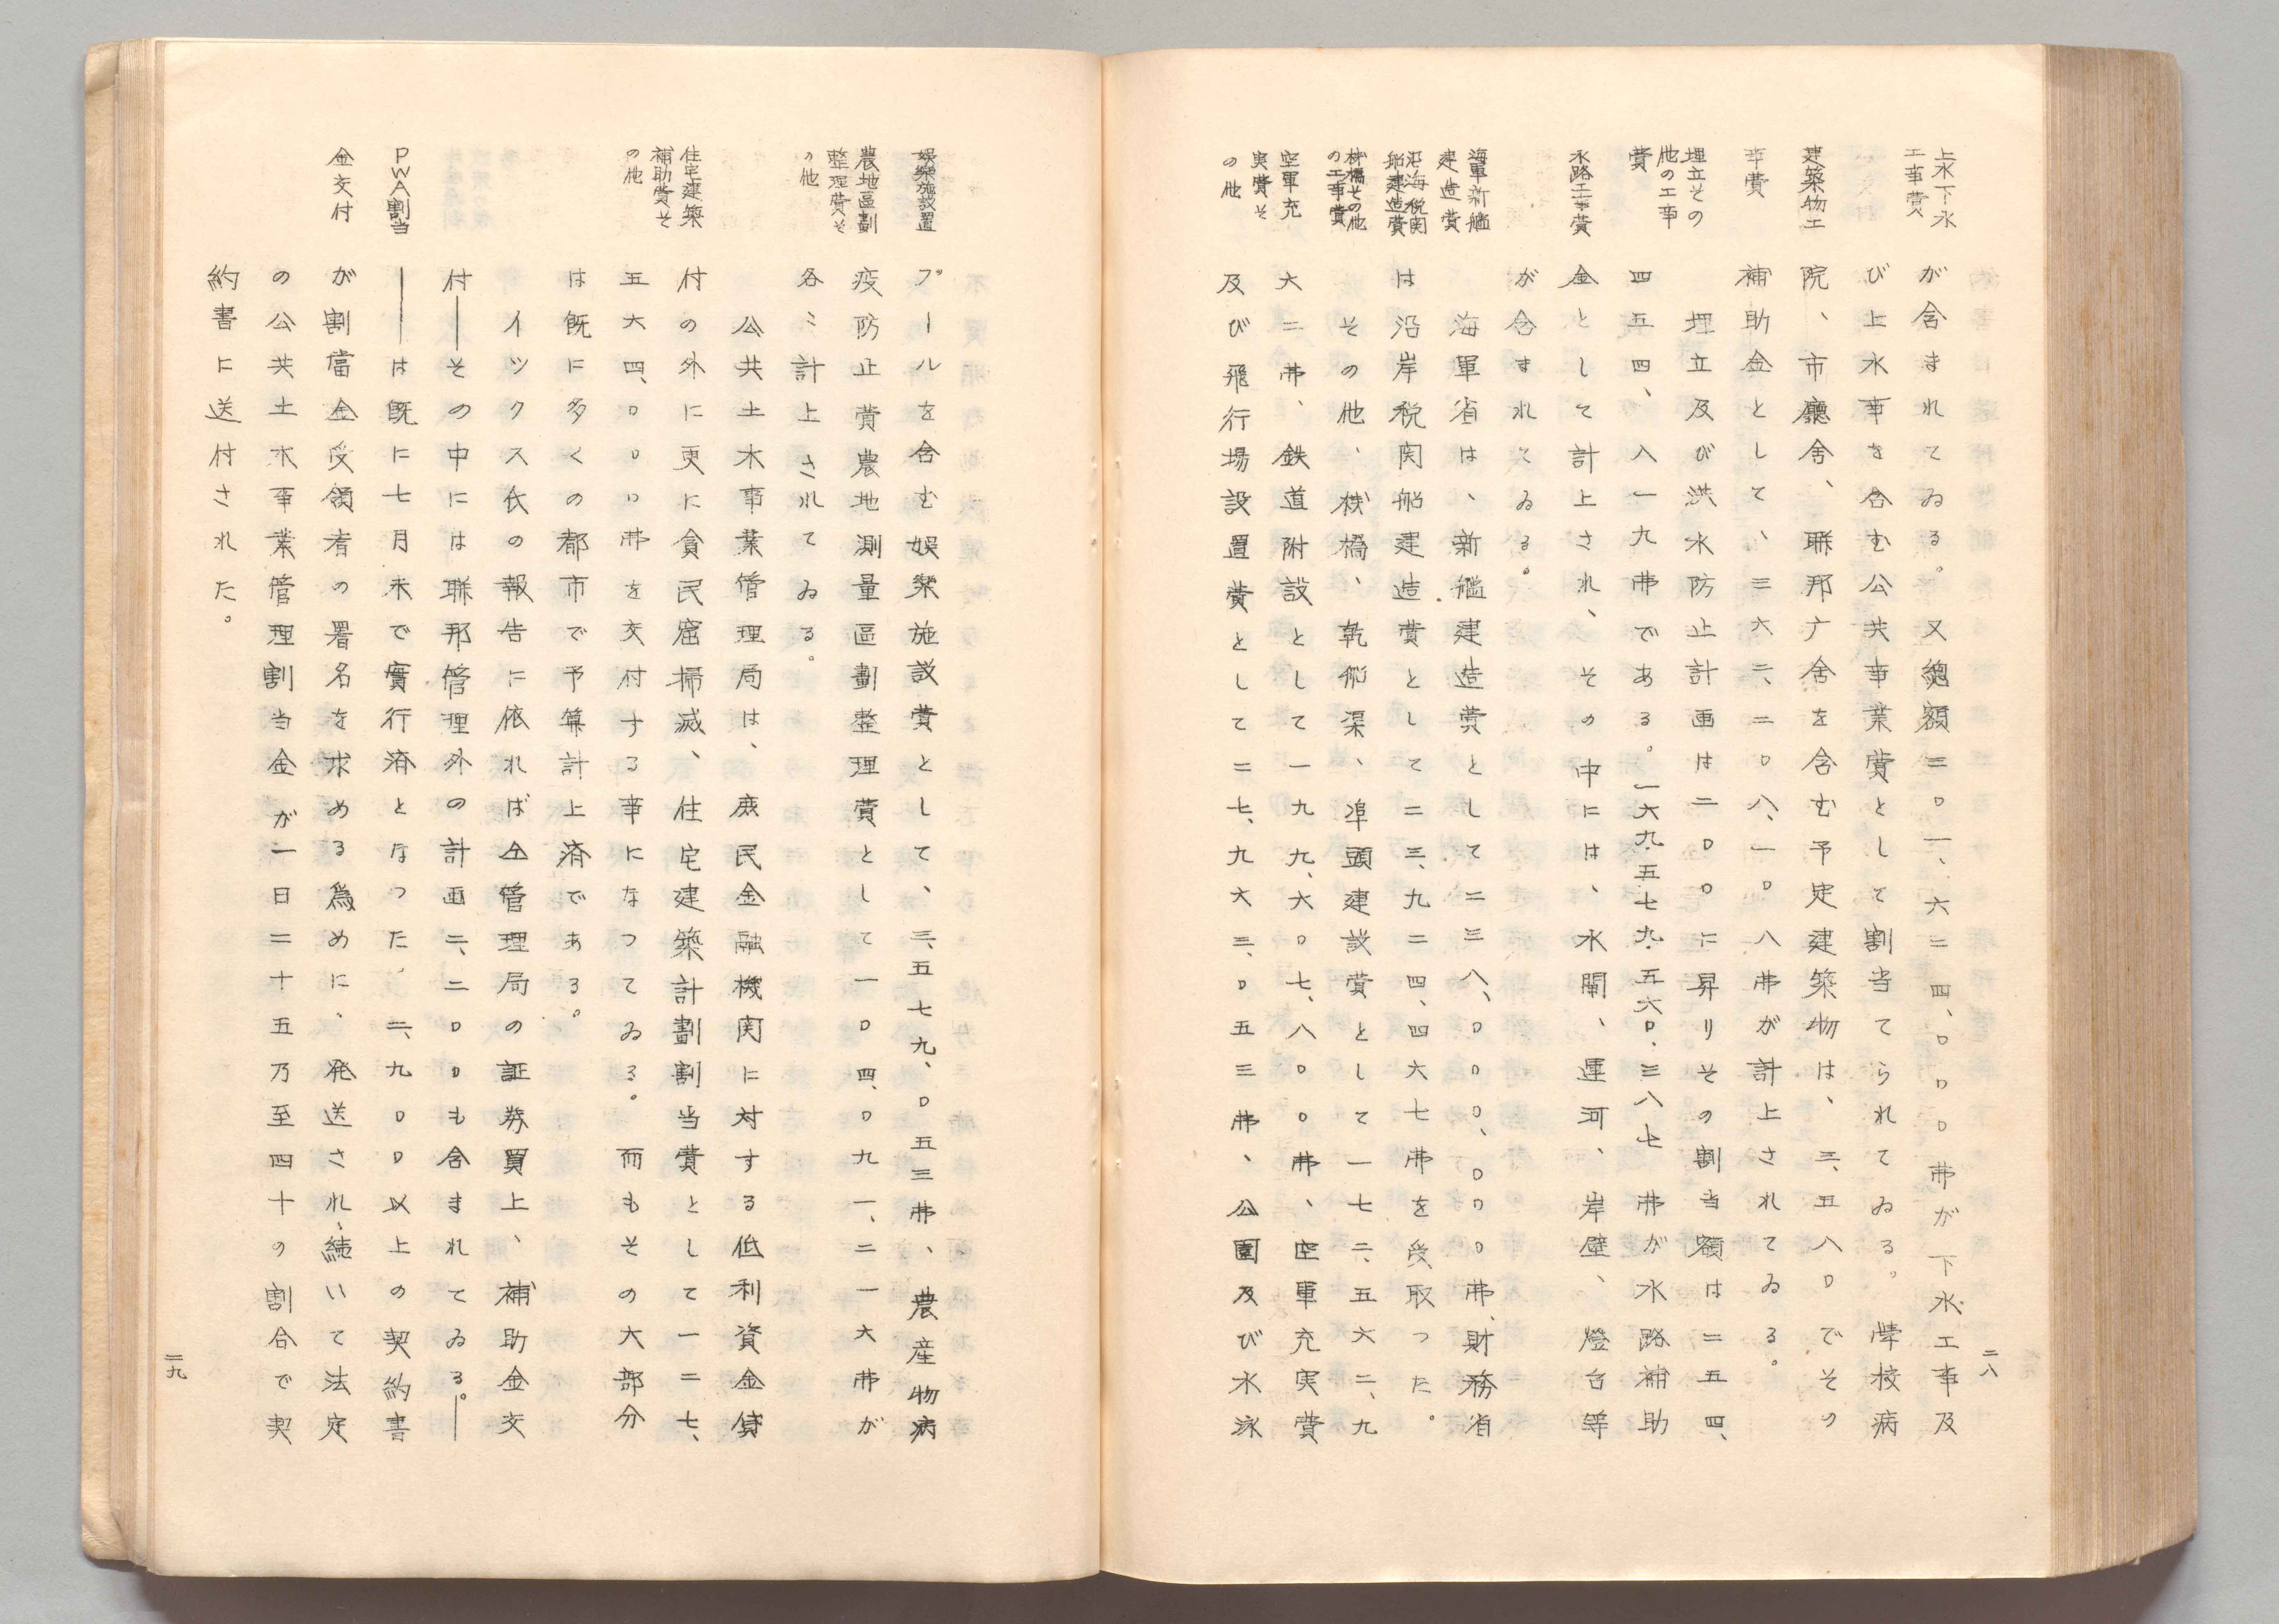 上水下水
工事費
建築物工
事費
埋立その
他の工事
費
水路工事費
海軍新艦
建造費
沿海税関
船建造費
桟橋その他
の工事費
空軍充
実費そ
の他
が含まれてゐる。又總額三〇一、六二四、〇〇〇弗が下水工事及
び上水事を含む公共事業費として割当てられてゐる。學校病
院、市廳舎、聯邦庁舎を含む予定建築物は、三、五八〇でその
補助金として、三六二、二〇八、一〇八弗が計上されてゐる。
埋立及び洪水防止計画は二〇〇に昇りその割当額は二五四、
四五四、八一九弗である。一六九、五七九、五六〇、三八七弗が水路補助
金として計上され、その中には、水閘、運河、岸壁、燈台等
が含すれてゐる。
海軍省は、新艦建造費として二三八、〇〇〇、〇〇〇弗、財務省
は沿岸税関船建造費として二三、九二四、四六七弗を受取つた。
その他、桟橋、乾船渠、埠頭建設費として一七二、五六二、九
六二弗、鉄道附設として一九九、六〇七、八〇〇弗、空軍充実費
及び飛行場設置費として二七、九六三、〇五三弗、公園及び水泳
二八
娯樂施設置
農地區劃
整理費そ
の他
住宅建築
補助費そ
の他
PWA割当
金交付
プールを含む娯樂施設費として、三、五七九、〇五三弗、農産物病
疫防止費農地測量區劃整理費として一〇四、〇九一、二一六弗が
各〻計上されてゐる。
公共土木事業管理局は、庶民金融機関に対する低利資金貸
付の外に更に貧民窟掃滅、住宅建築計劃割当費として一二七、
五六四、〇〇〇弗を交付する事になつてゐる。而もその大部分
は既に多くの都市で予算計上済である。
イツクス氏の報告に依れば仝管理局の証券買上、補助金交
付——その中には聯邦管理外の計画二、二〇〇も含まれてゐる。—
—は既に七月末で實行済となつた。二、九〇〇以上の契約書
が割當金受領者の署名を求める爲めに、発送され、続いて法定
の公共土木事業管理割当金が一日二十五乃至四十の割合で契
約書に送付された。
二九